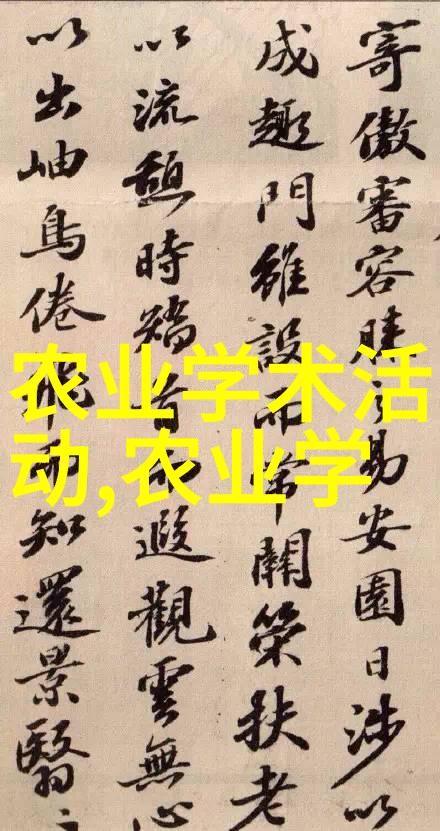 寄傲審容膝之易安園日涉以
成趣門雖設而常關策扶老
以流憩時矯首而遐觀雲無心
以出岫鳥倦飛而知還景翳
农业学术活
动,农业学